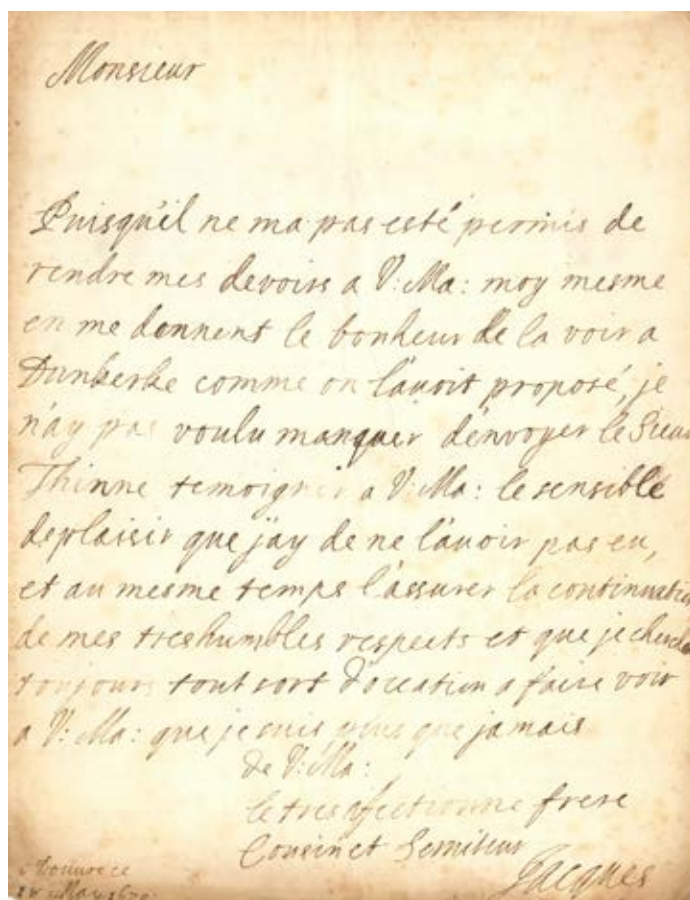 Monsieur
Puisqu'il ne ma pas esté permis de
rendre mes devoirs a V: Ma: moy mesme
en me donnent le bonheur de la voir a
Dunkerke comme on l'auoit proposé, je
n'ay pas voulu manquer d'envoyer le Sieur
Thinne temoigner a V: Ma: le sensible
deplaisir que j'ay de ne l'auoir pas eu,
et au mesme temps l'assurer la continuation
de mes treshumbles respects et que je cherche
toujours tout sort d'occation a faire voir
a V: Ma: que je suis plus que jamais
de V: Ma:
le tres afectionne frere
Cousin et Serviteur
Jacques
a Douure ce
May